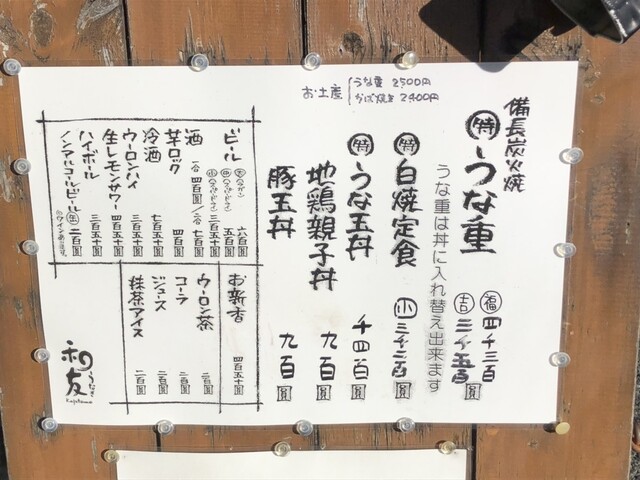 備長炭火焼
特うな重 福四千三百 吉三千五百円
うな重は丼に入れ替え出来ます
特白焼定食 小三千二百円
特うな玉丼 千四百円
地鶏親子丼 九百円
豚玉丼 九百円
お土産 うな重 2500円
かば焼き 2400円
ビール 六百円
五百円
三百五十円
酒 一合 四百円/二合 七百円
芋ロック 四百円
冷酒 七百五十円
ウーロンハイ 三百五十円
生レモンサワー 四百五十円
ハイボール 三百五十円
ノンアルコールビール 二百円
お新香 四百五十円
ウーロン茶 二百円
コーラ 二百円
ジュース 二百円
抹茶アイス 二百円
うなぎ
和友